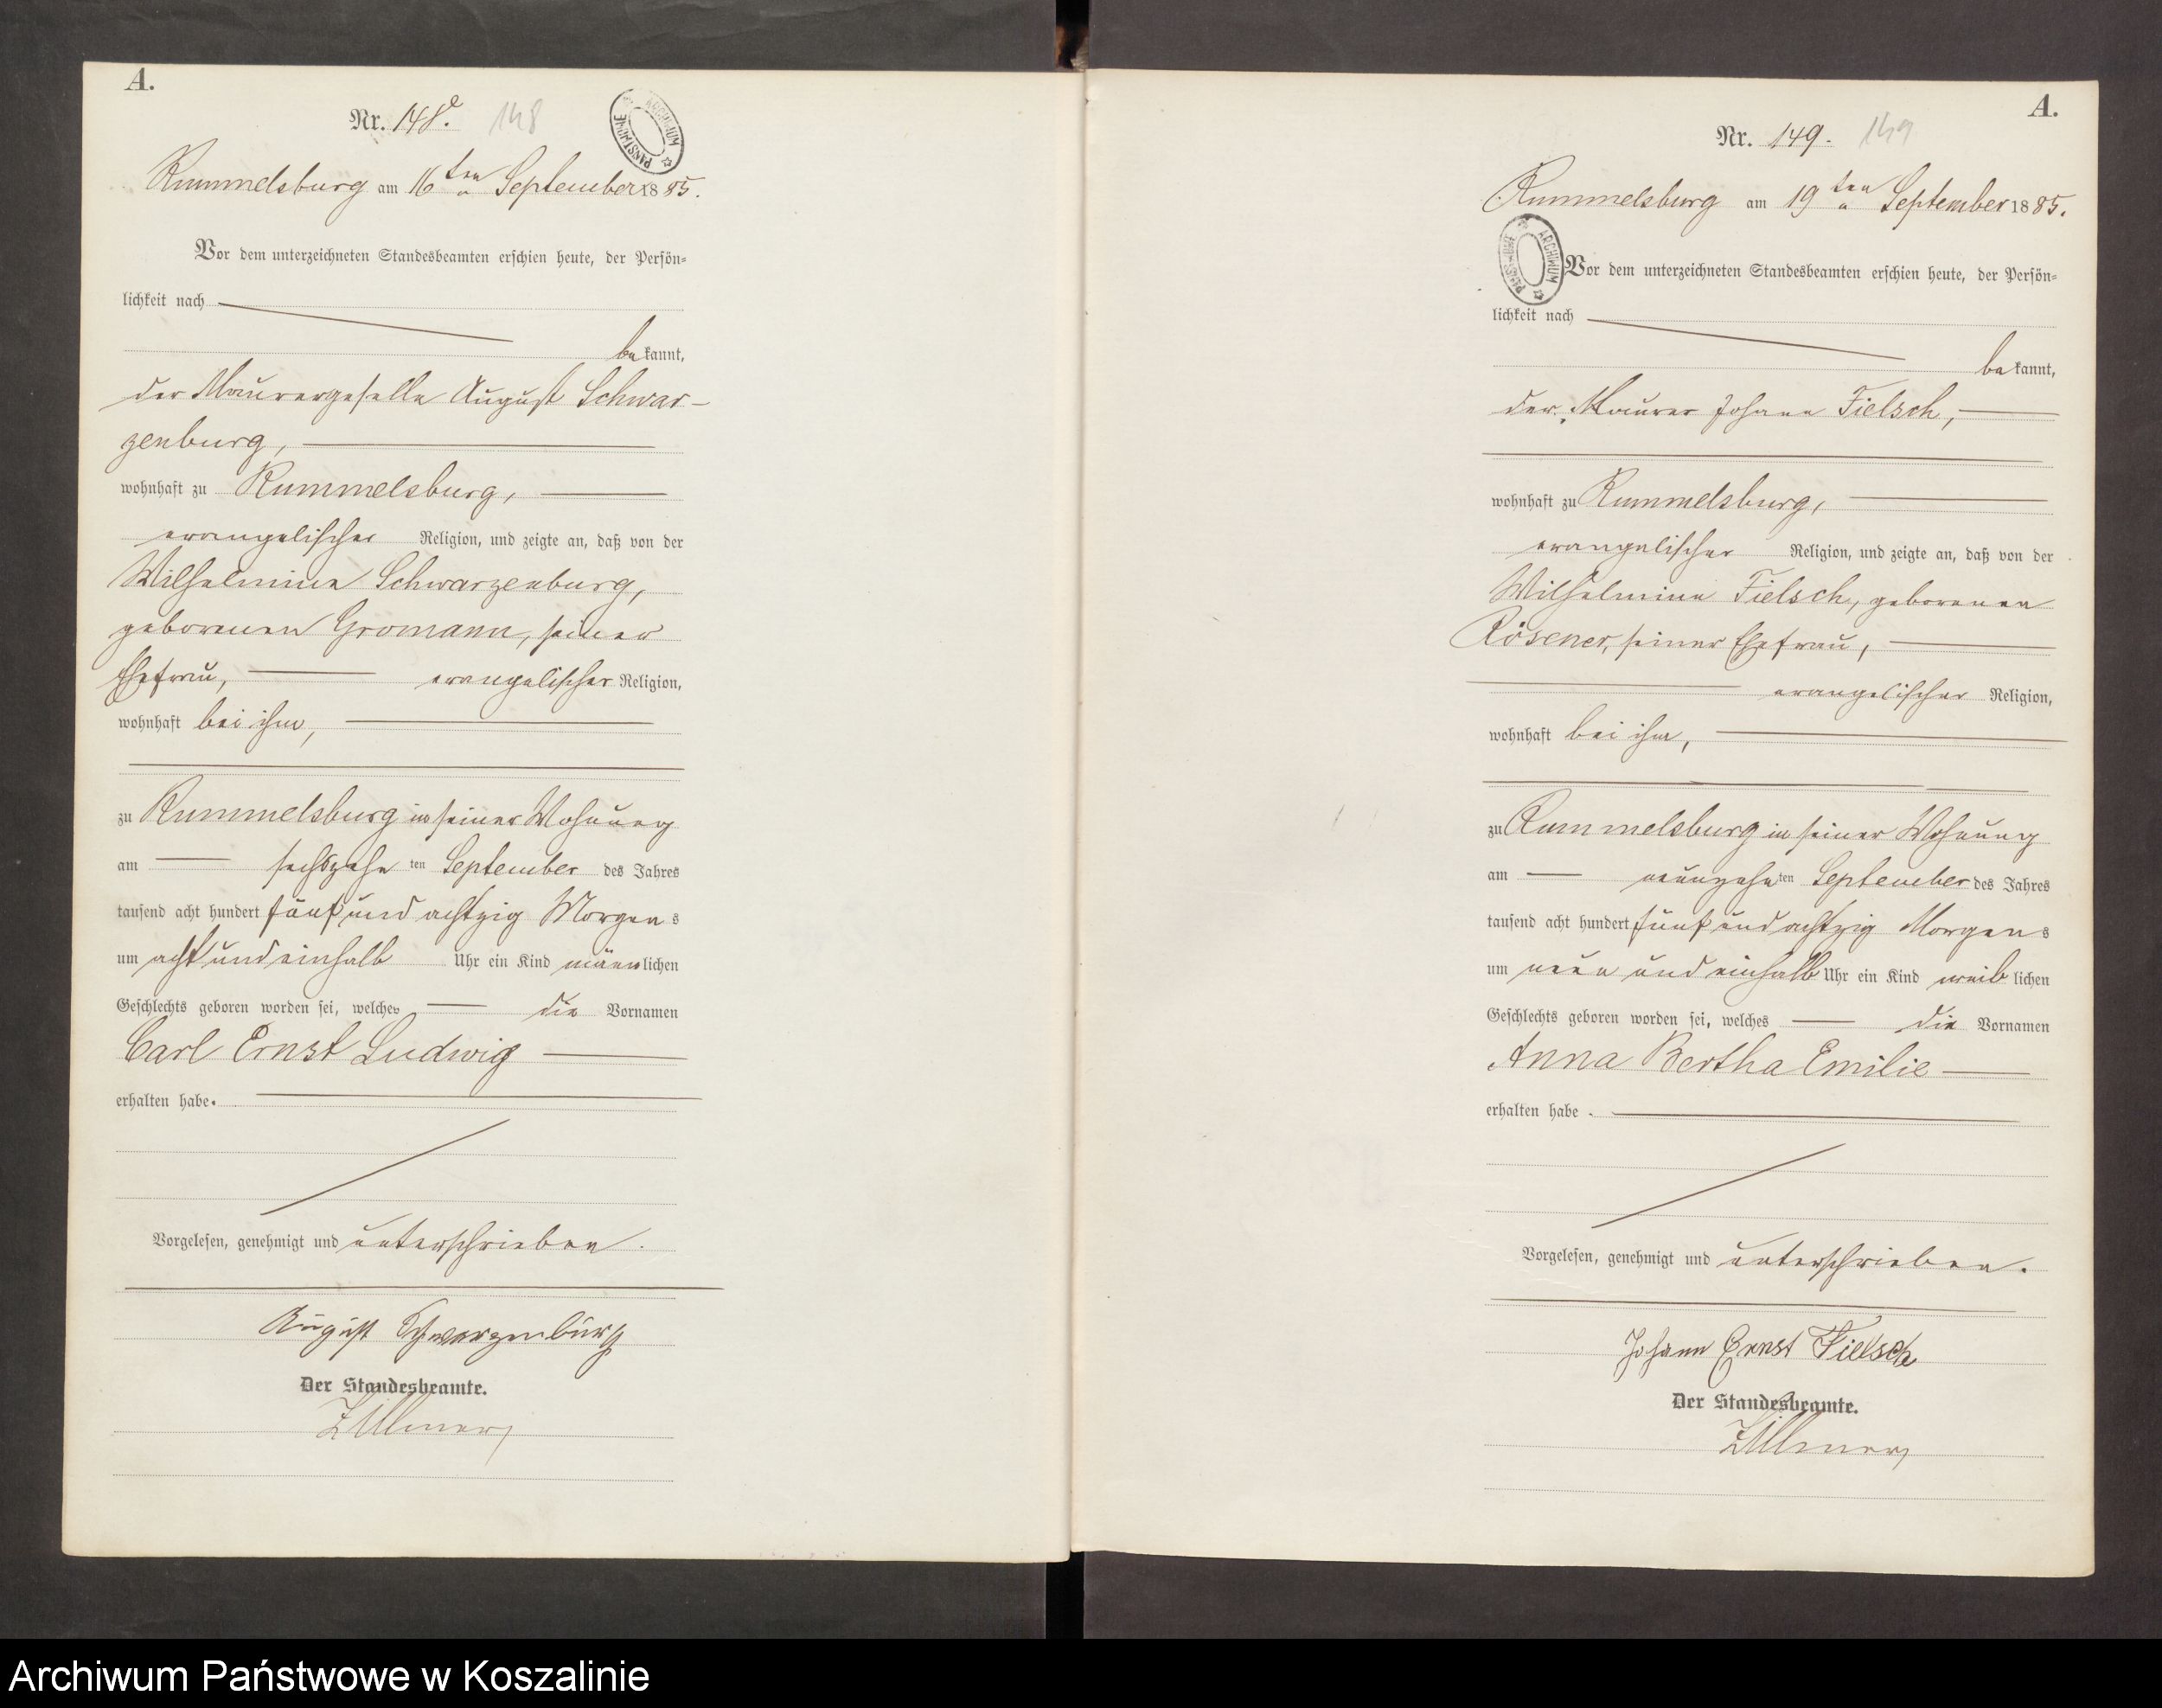 A.
Nr. 148. 148
ARCHIWUM PAŃSTWOWE
Rummelsburg am 16ten September 1885.
Vor dem unterzeichneten Standesbeamten erschien heute, der Persön-
lichkeit nach
bekannt,
der Maurergeselle August Schwar-
zenburg,
wohnhaft zu Rummelsburg,
evangelischer Religion, und zeigte an, daß von der
Wilhelmine Schwarzenburg,
geborenen Gromann, seiner
Ehefrau, evangelischer Religion,
wohnhaft bei ihm,
zu Rummelsburg in seiner Wohnung
am sechszehnten September des Jahres
tausend acht hundert fünf und achtzig Morgens
um acht und einhalb Uhr ein Kind männlichen
Geschlechts geboren worden sei, welches die Vornamen
Carl Ernst Ludwig
erhalten habe.
Vorgelesen, genehmigt und unterschrieben.
August Schwarzenburg
Der Standesbeamte.
Zillmer
A.
Nr. 149. 149
Rummelsburg am 19ten September 1885.
ARCHIWUM PAŃSTWOWE
Vor dem unterzeichneten Standesbeamten erschien heute, der Persön-
lichkeit nach
bekannt,
der Maurer Johann Fielsch,
wohnhaft zu Rummelsburg,
evangelischer Religion, und zeigte an, daß von der
Wilhelmine Fielsch, geborenen
Rösener, seiner Ehefrau,
evangelischer Religion,
wohnhaft bei ihm,
zu Rummelsburg in seiner Wohnung
am neunzehnten September des Jahres
tausend acht hundert fünf und achtzig Morgens
um neun und einhalb Uhr ein Kind weiblichen
Geschlechts geboren worden sei, welches die Vornamen
Anna Bertha Emilie
erhalten habe.
Vorgelesen, genehmigt und unterschrieben.
Johann Ernst Fielsch
Der Standesbeamte.
Zillmer
Archiwum Państwowe w Koszalinie